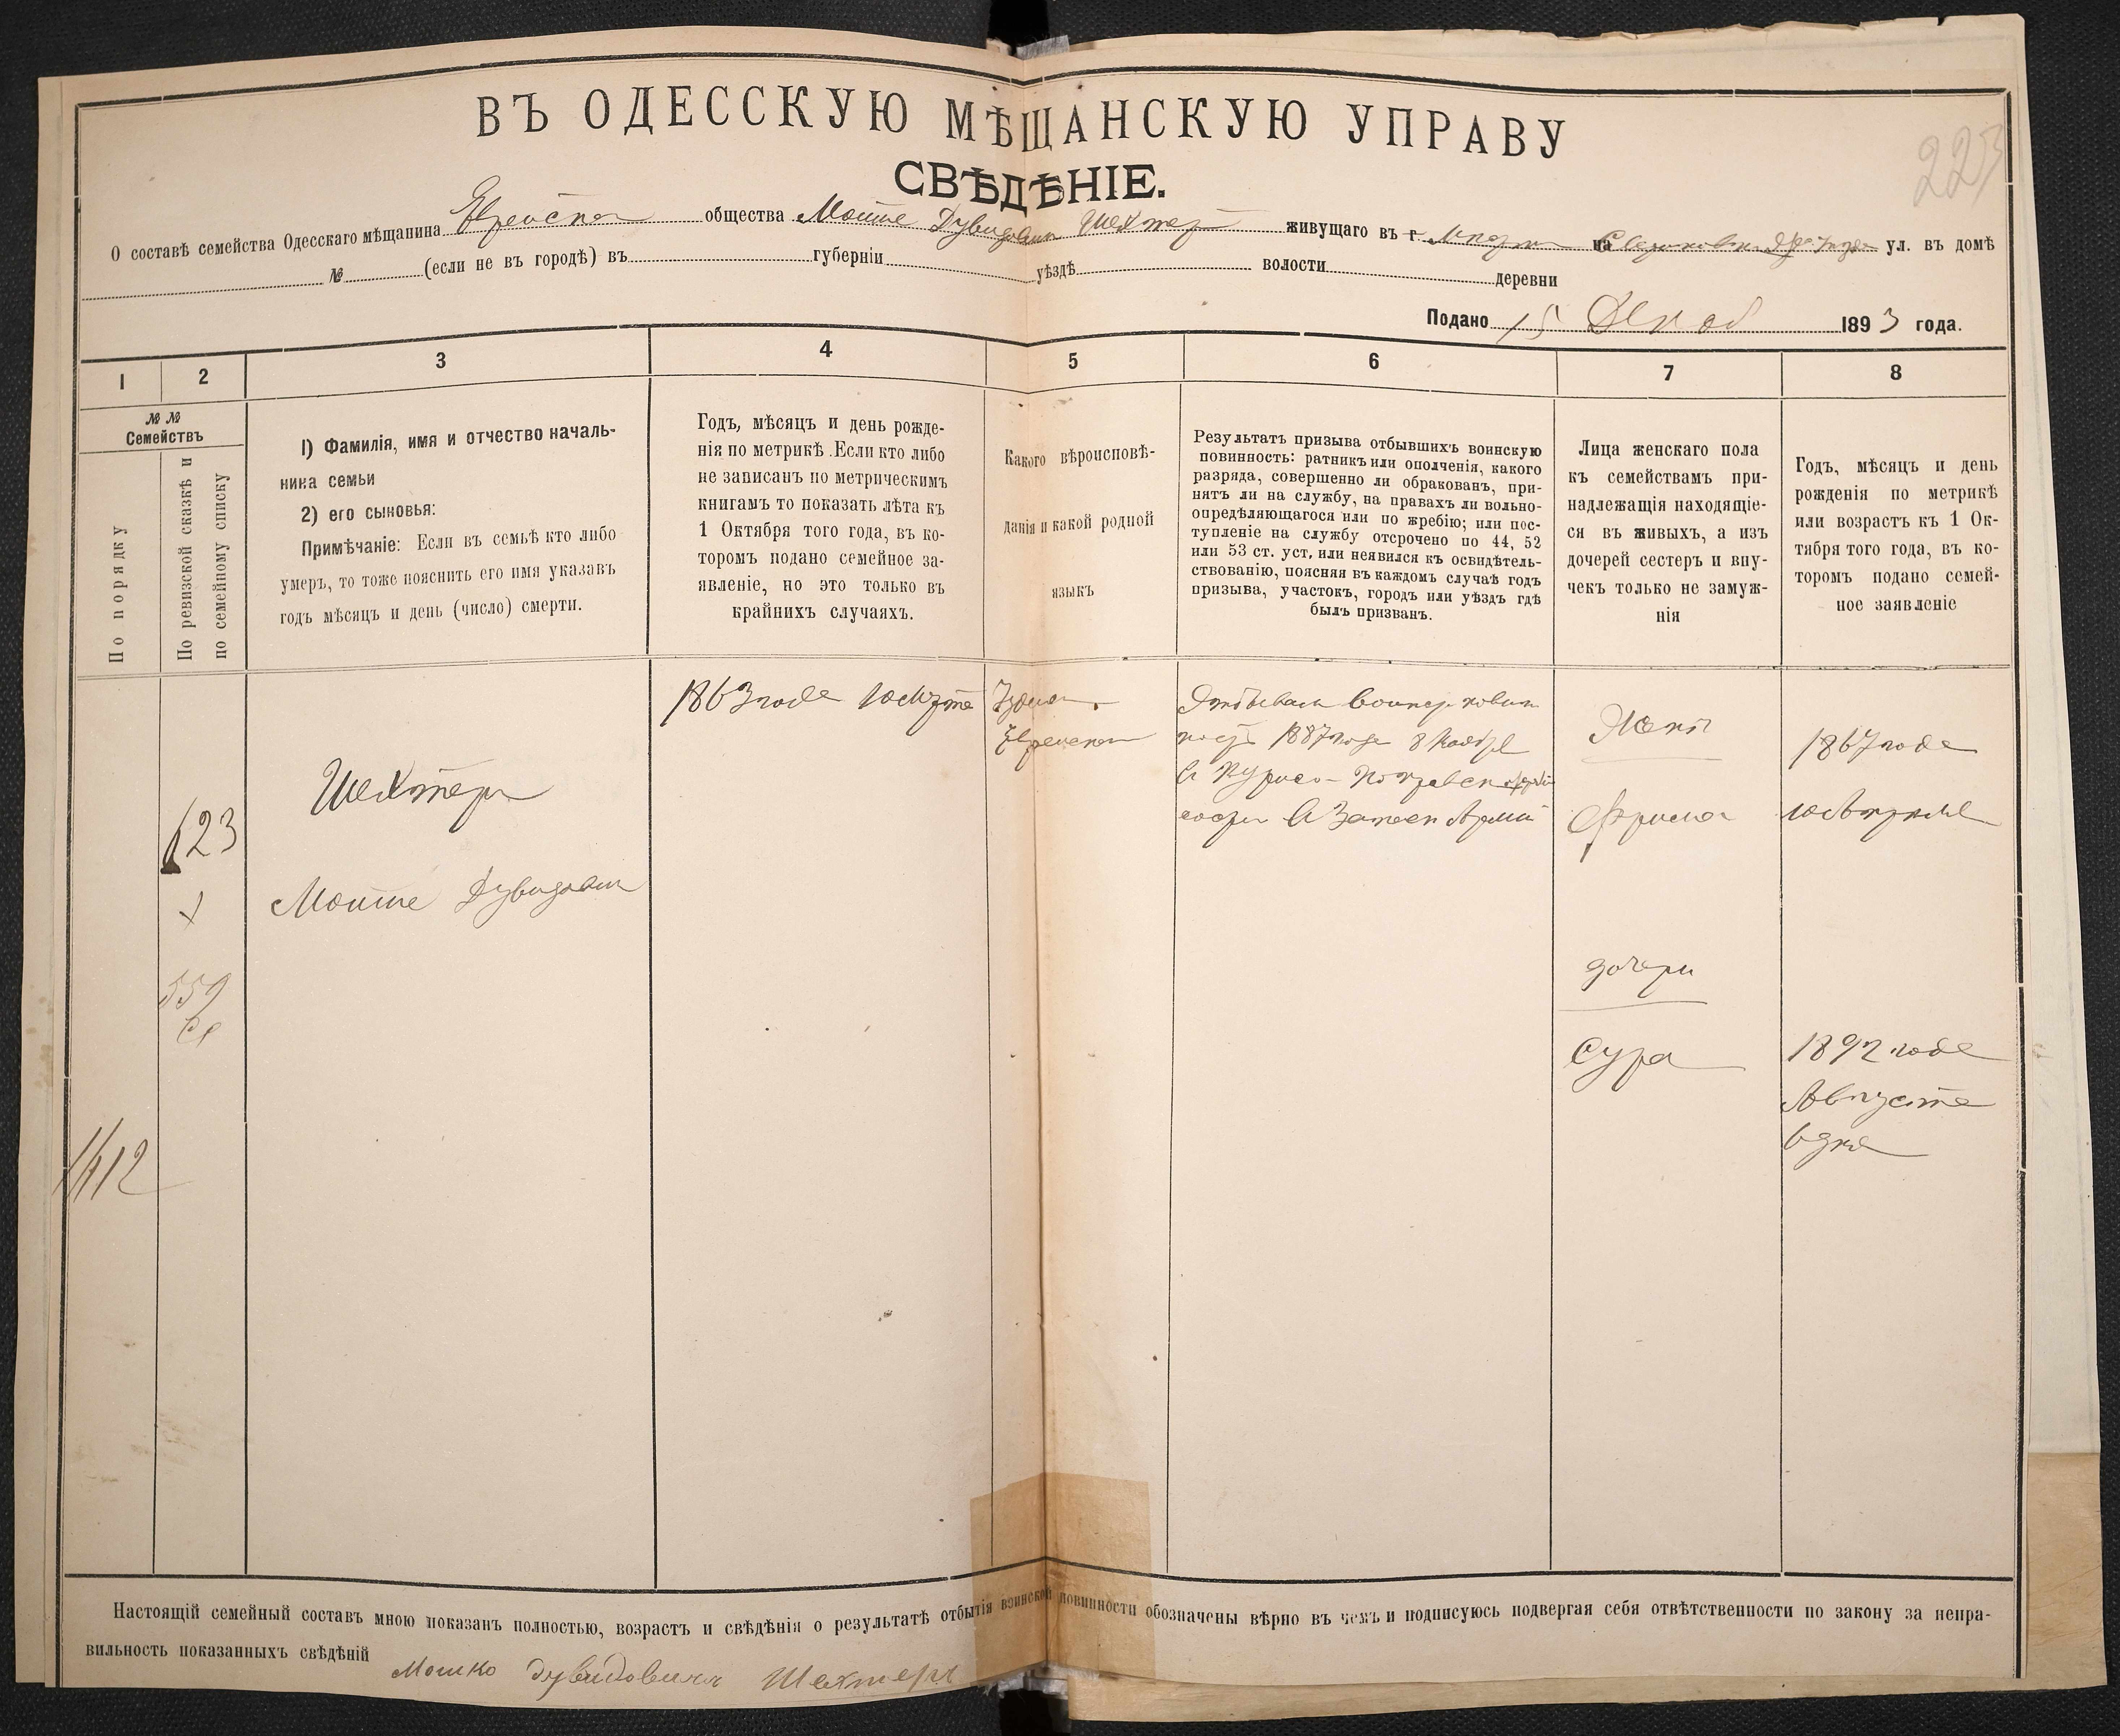 ВЪ ОДЕССКУЮ МѢЩАНСКУЮ УПРАВУ
СВѢДѢНІЕ.
О составѣ семейства Одесскаго мѣщанина Еврейска общества Мошие Дувидович Шехтер живущаго въ г. на ул. въ домѣ
№ (если не въ городѣ) въ губерніи уѣздѣ волости деревни
Подано 15 Декаб 1893 года.
1 2 3 4 5 6 7 8
№ №
Семействъ
По порядку
По ревизской сказкѣ и
по семейному списку
1) Фамилія, имя и отчество началь-
ника семьи
2) его сыновья:
Примѣчаніе: Если въ семьѣ кто либо
умеръ, то тоже пояснить его имя указавъ
годъ мѣсяцъ и день (число) смерти.
Годъ, мѣсяцъ и день рожде-
нія по метрикѣ. Если кто либо
не записанъ по метрическимъ
книгамъ то показать лѣта къ
1 Октября того года, въ ко-
торомъ подано семейное за-
явленіе, но это только въ
крайнихъ случаяхъ.
Какого вѣроисповѣ-
данія и какой родной
языкъ
Результатъ призыва отбывшихъ воинскую
повинность: ратникъ или ополченія, какого
разряда, совершенно ли обракованъ, при-
нятъ ли на службу, на правахъ ли вольно-
опредѣляющагося или по жребію; или пос-
тупленіе на службу отсрочено по 44, 52
или 53 ст. уст, или неявился къ освидѣтель-
ствованію, поясняя въ каждомъ случаѣ годъ
призыва, участокъ, городъ или уѣздъ гдѣ
былъ призванъ.
Лица женскаго пола
къ семействамъ при-
надлежащія находящіе-
ся въ живыхъ, а изъ
дочерей сестеръ и вну-
чекъ только не замуж-
нія
Годъ, мѣсяцъ и день
рожденія по метрикѣ
или возрастъ къ 1 Ок-
тября того года, въ ко-
торомъ подано семей-
ное заявленіе
623
559
Шехтер
Мошие Дувидович
1863 года 10 Марта
Иудей
Еврейски
1887 года 8 Ноября
Жена
Фрима
1867 года
10 Апреля
дочери
Сура
1892 года
Августа
6 дня
Настоящій семейный составъ мною показанъ полностью, возрастъ и свѣдѣнія о результатѣ отбытія воинской повинности обозначены вѣрно въ чемъ и подписуюсь подвергая себя отвѣтственности по закону за непра-
вильность показанныхъ свѣдѣній Мошко Дувидовичъ Шехтеръ